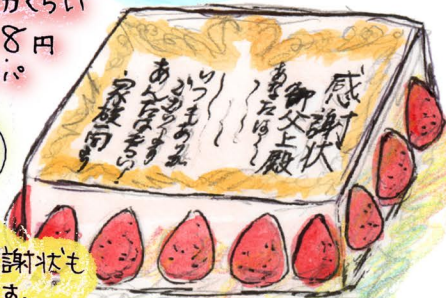 くらい
8円
パ
感謝状
御父上殿
あなたは〜
いつもありが
あんたはえらい!
家族一同
謝状も
す。